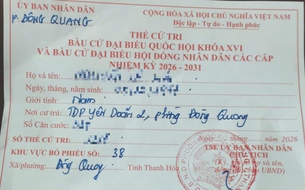 ỦY BAN NHÂN DÂN
P. ĐÔNG QUANG
CỘNG HÒA XÃ HỘI CHỦ NGHĨA VIỆT NAM
Độc lập - Tự do - Hạnh phúc
THẺ CỬ TRI
BẦU CỬ ĐẠI BIỂU QUỐC HỘI KHÓA XVI
VÀ BẦU CỬ ĐẠI BIỂU HỘI ĐỒNG NHÂN DÂN CÁC CẤP
NHIỆM KỲ 2026 - 2031
Họ và tên:
Ngày, tháng, năm sinh:
Giới tính: Nam
Nơi cư trú: TDP Yên Doãn 2, phường Đông Quang
Số Căn cước:
SỐ THẺ CỬ TRI:
KHU VỰC BỎ PHIẾU SỐ: 38
Xã/phường: Đông Quang Tỉnh Thanh Hóa
năm 2026
TM. ỦY BAN NHÂN DÂN
CHỦ TỊCH